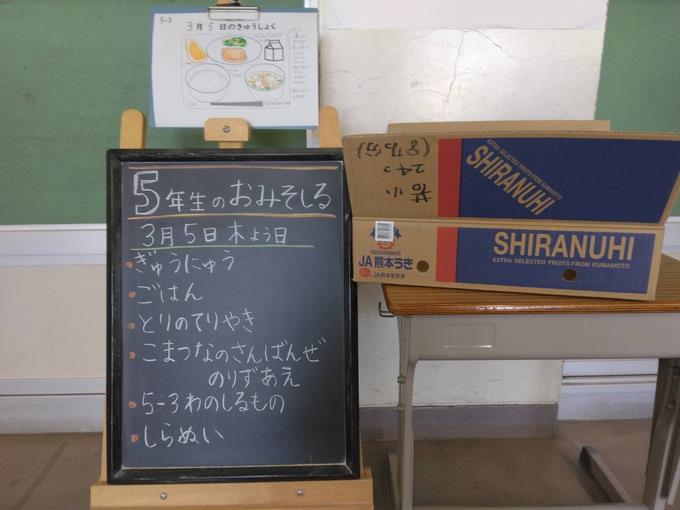 5-3
3月5日のきゅうしょく
5年生のおみそしる
3月5日木よう日
・ぎゅうにゅう
・ごはん
・とりのてりやき
・こまつなのさんばんぜ
のりずあえ
・5-3わのしるもの
・しらぬい
若小
24コ
SHIRANUHI
EXTRA SELECTED FRUITS FROM KUMAMOTO
JA熊本うき
SHIRANUHI
EXTRA SELECTED FRUITS FROM KUMAMOTO